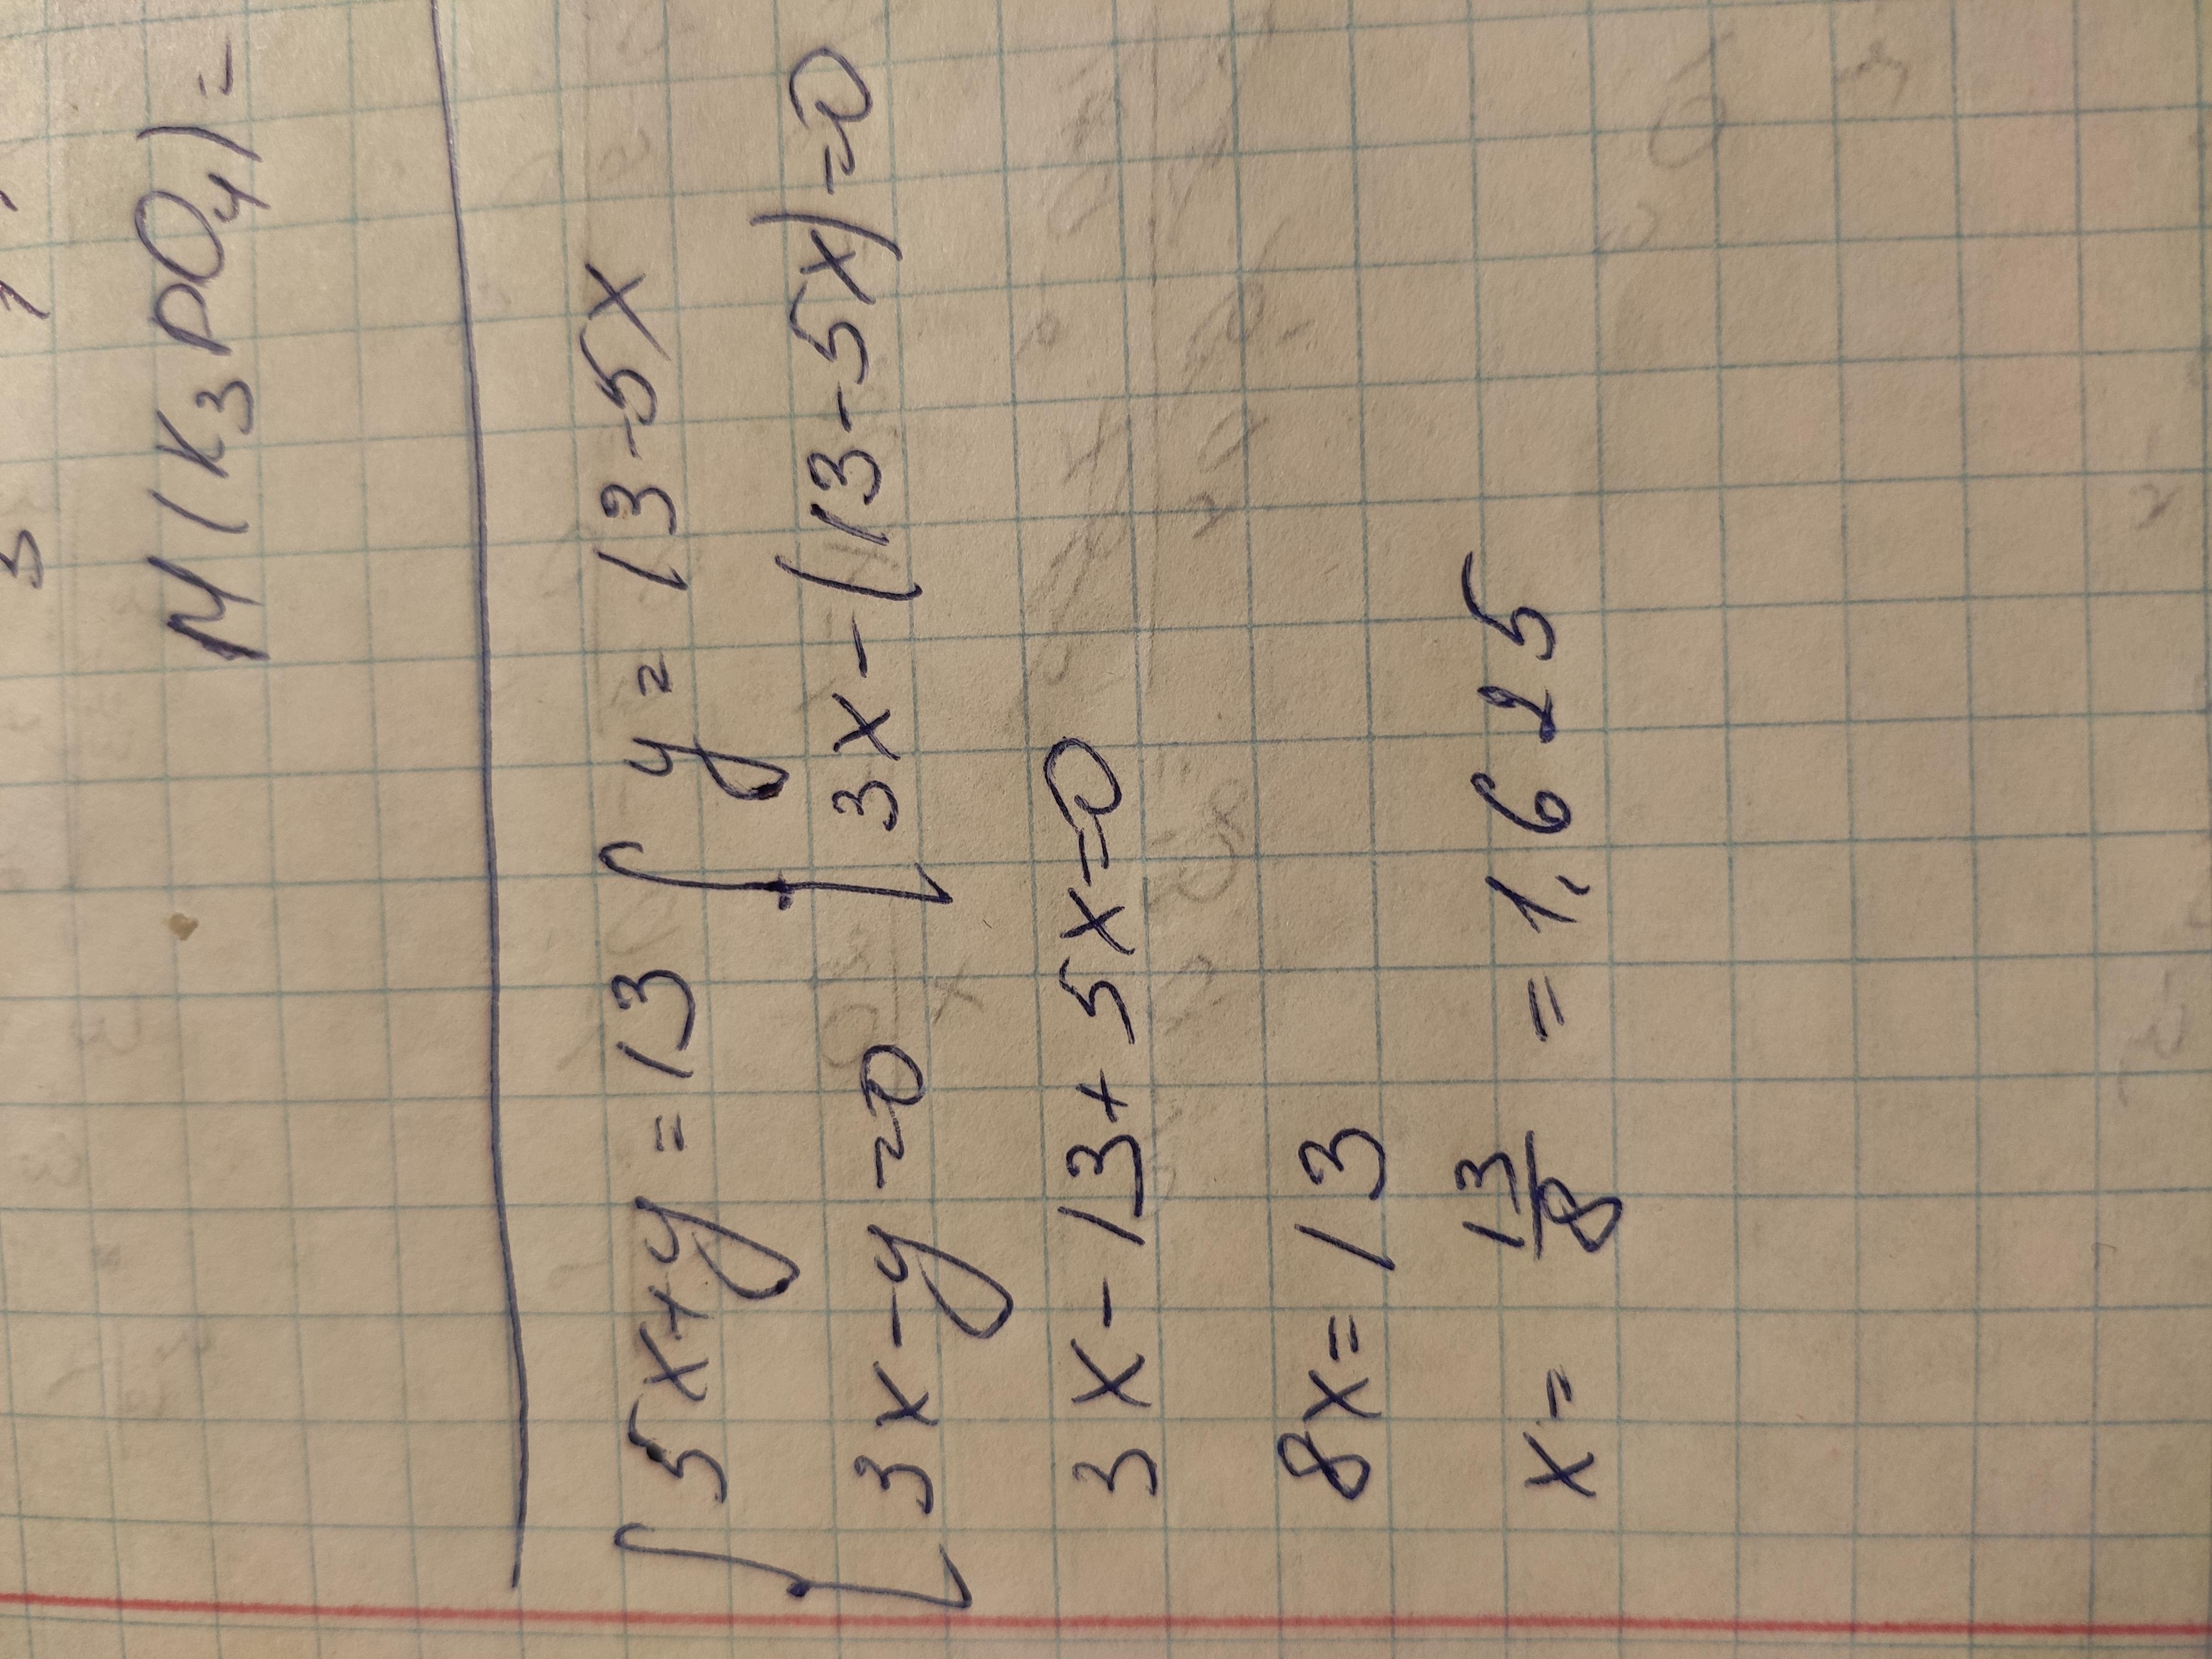 M(K₃PO₄)=
{5x+y=13 {y=13-5x
3x-y=0 3x-(13-5x)=0
3x-13+5x=0
8x=13
x=13/8=1,625